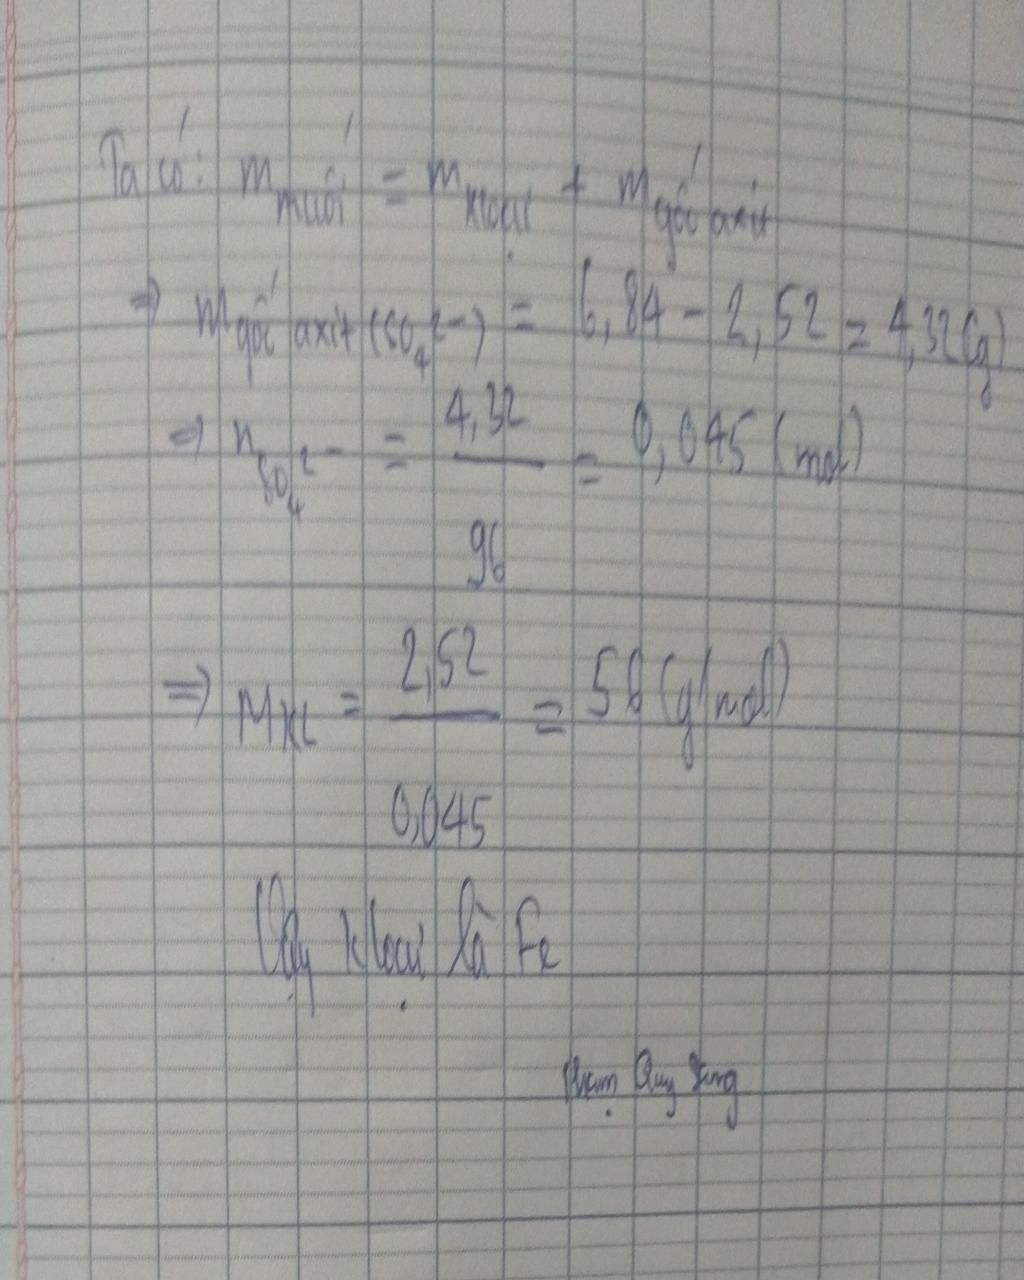 Ta có: m muối = m kloại + m gốc axit
⇒ m gốc axit (SO₄²⁻) = 6,84 - 2,52 = 4,32 (g)
⇒ n SO₄²⁻ = 4,32 / 96 = 0,045 (mol)
⇒ M KL = 2,52 / 0,045 = 56 (g/mol)
Vậy kloại là Fe
Phạm Quy